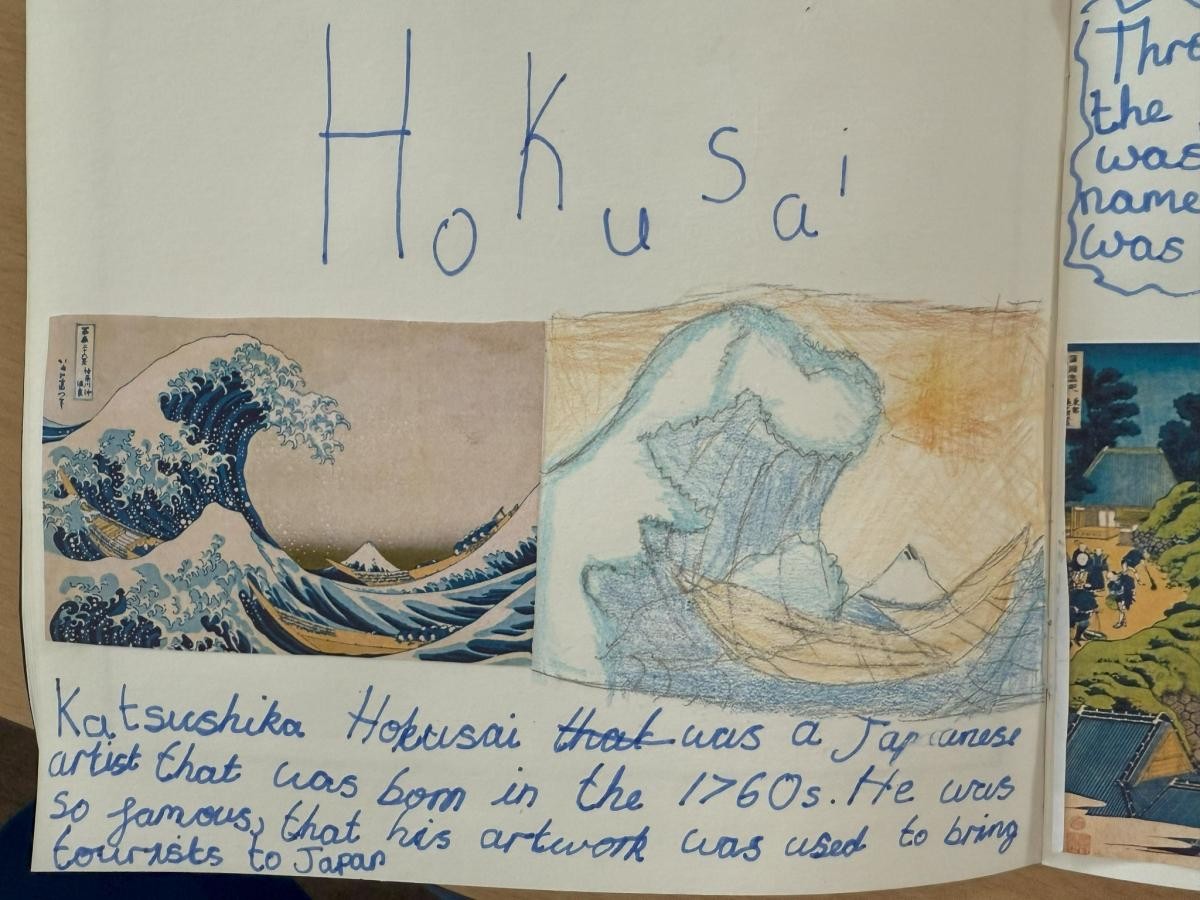 Hokusai
Katsushika Hokusai that was a Japanese
artist that was born in the 1760s. He was
so famous, that his artwork was used to bring
tourists to Japan
the
was
name
was